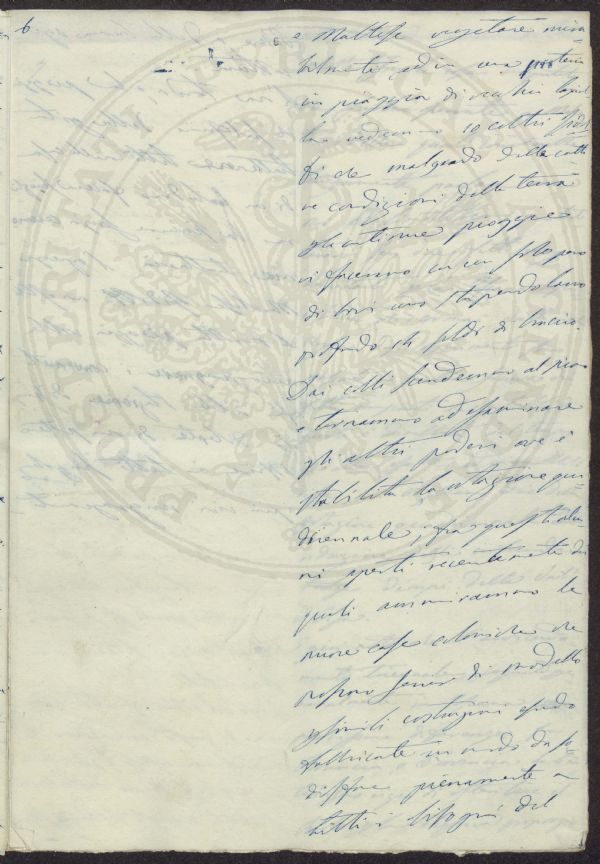 6
e Maltesse vegetare mira-
bilmente, ed in una
in pioggia di
lo vedemmo io coltri
ti che malgrado delle catti-
ve condizioni della terra
gli continue pioggie
vi facevano con un solo paro
di bovi uno stupendo lavoro
profondo
Dai colli scendemmo al piano
e tornammo ad esaminare
gli altri poderi ove è
stabilita la rotazione qua-
driennale; fra questi alcu-
ni aperti recentemente di
quali ammirammo le
nuove case coloniche che
possono servire di modello
a simili costruzioni essendo
fabbricate in modo da so-
disfare pienamente a
tutti i bisogni del